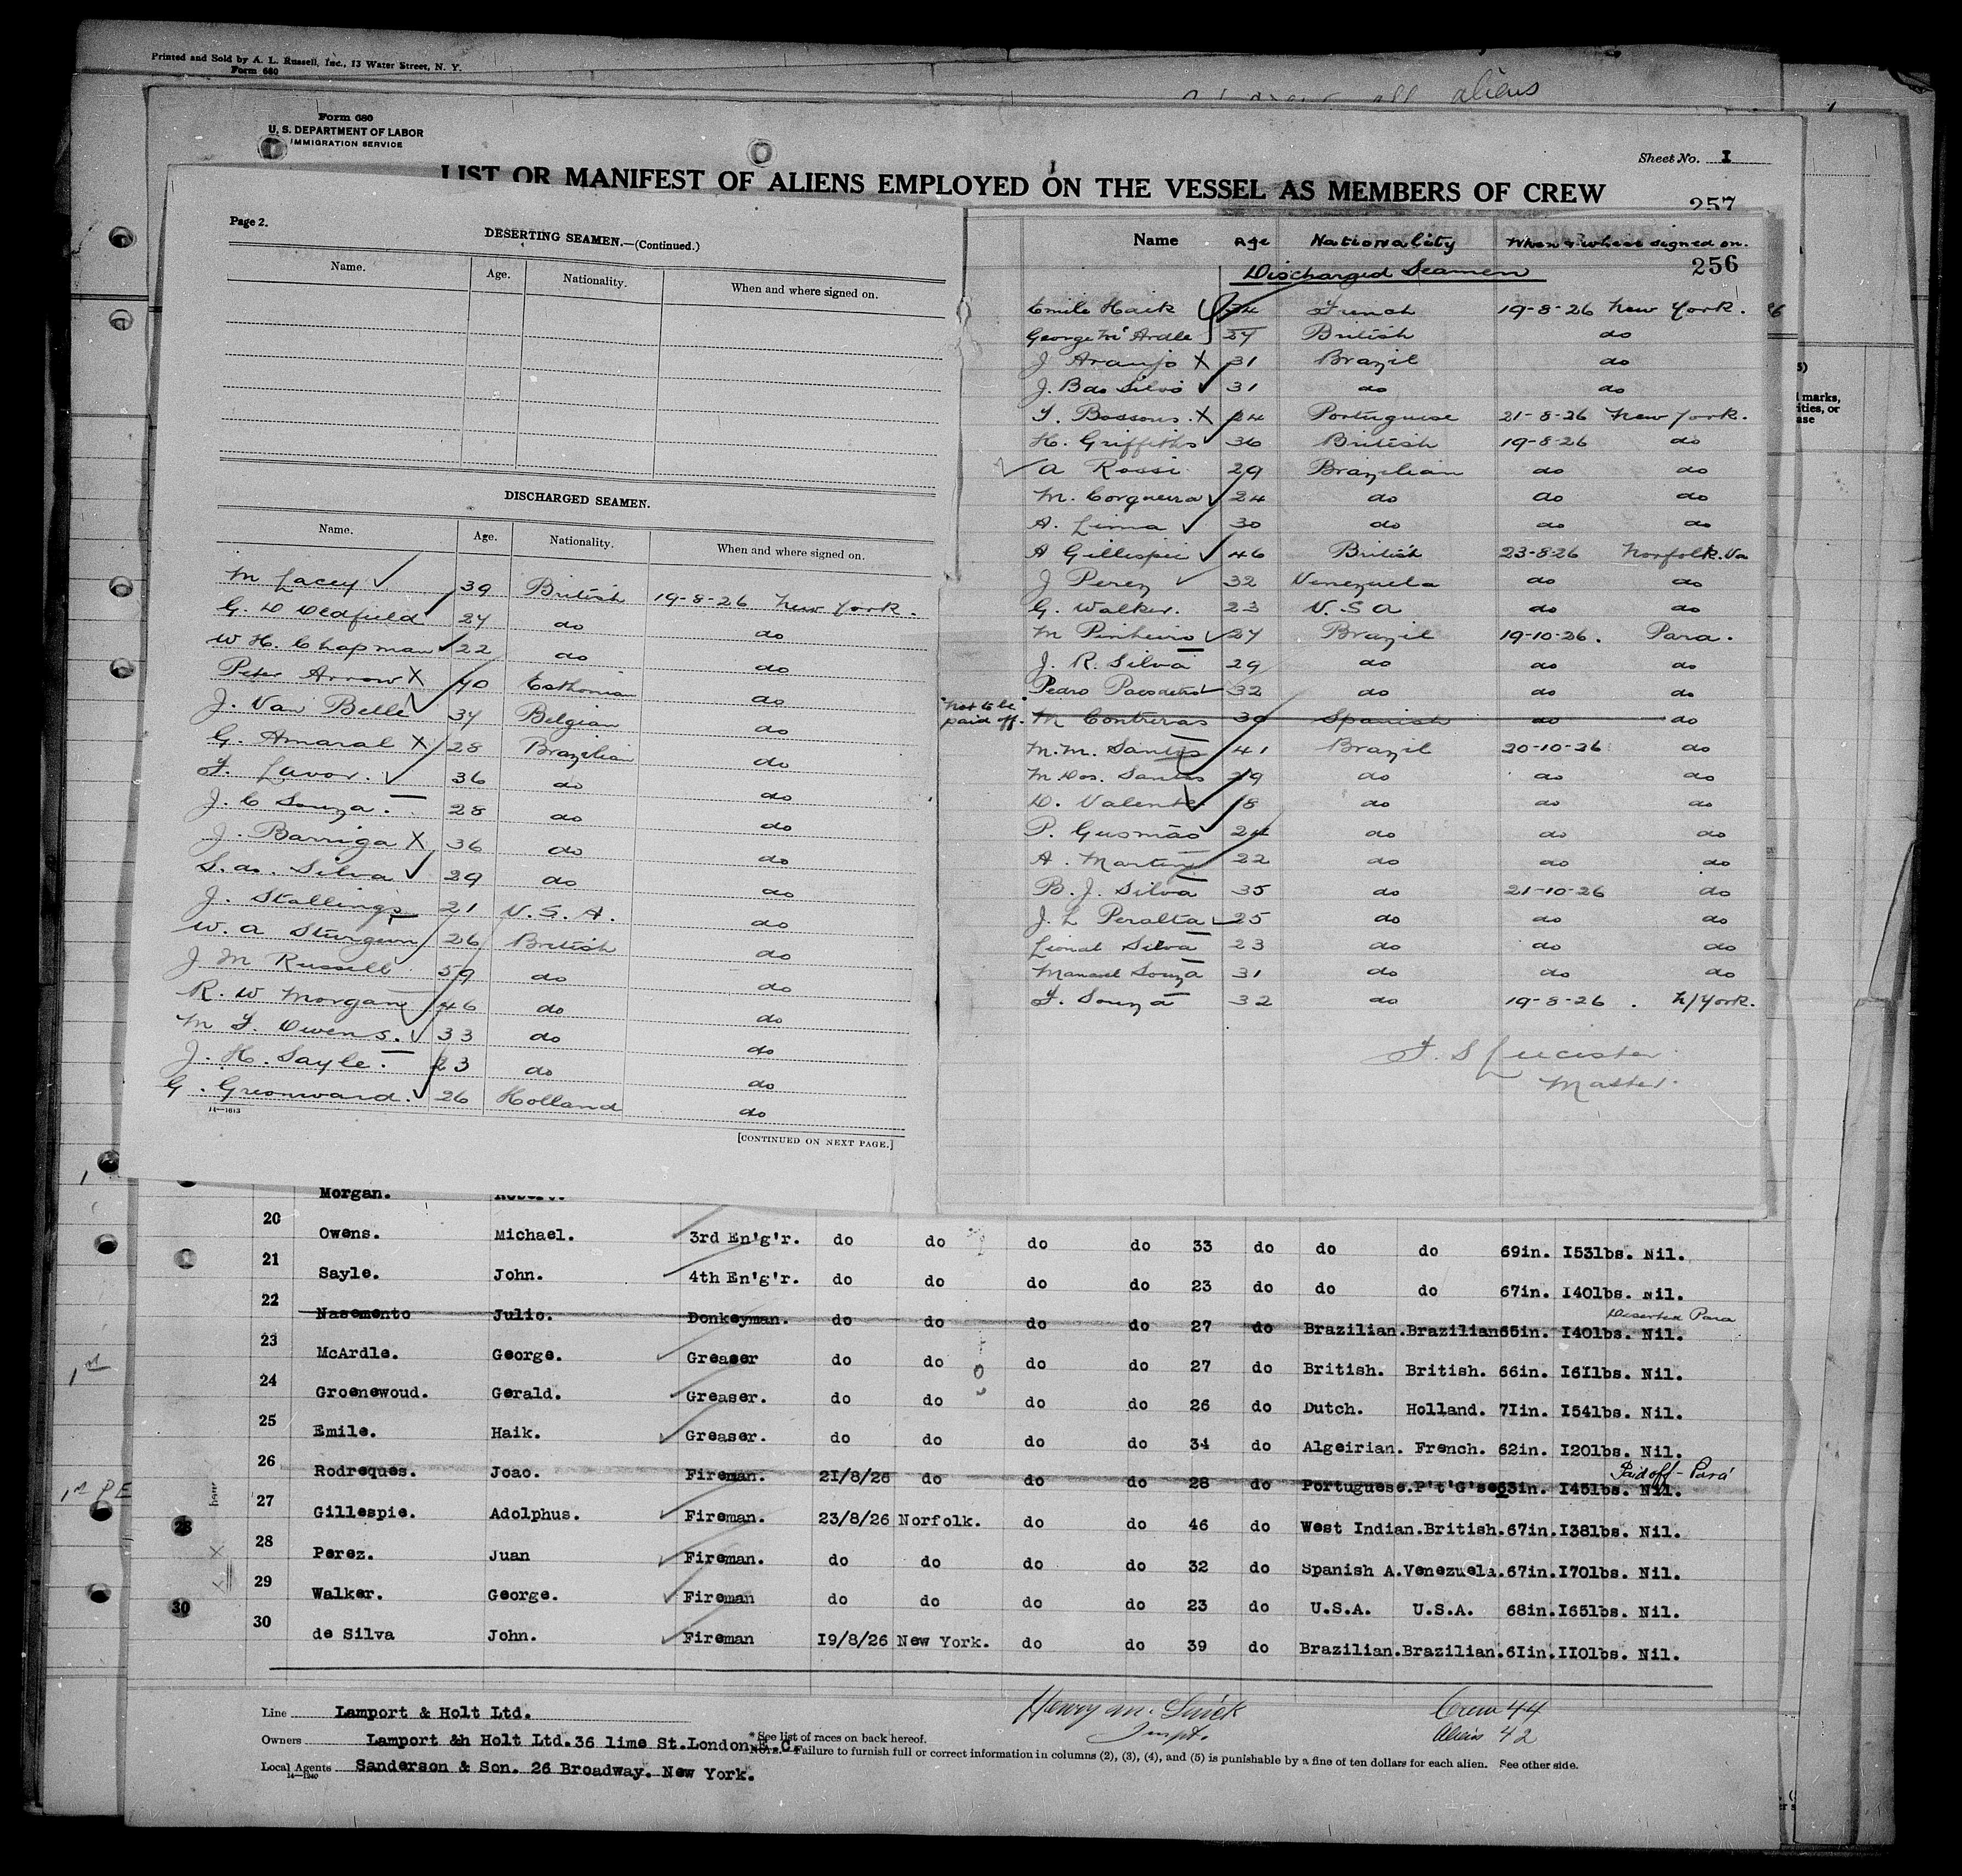 Printed and Sold by A. L. Russell, Inc., 13 Water Street, N. Y.
Form 680
all aliens
Form 680
U. S. DEPARTMENT OF LABOR
IMMIGRATION SERVICE
Sheet No. I
LIST OR MANIFEST OF ALIENS EMPLOYED ON THE VESSEL AS MEMBERS OF CREW
257
Page 2.
DESERTING SEAMEN.—(Continued.)
Name. Age. Nationality. When and where signed on.
DISCHARGED SEAMEN.
Name. Age. Nationality. When and where signed on.
M Lacey ✓ 39 British 19-8-26 New York.
G. D Oldfield ✓ 27 do do
W H. Chapman ✓ 22 do do
Peter Arrow X 40 Esthonian do
J. Van Belle ✓ 37 Belgian do
G. Amaral X 28 Brazilian do
F. Lavor. ✓ 36 do do
J. C Souza. 28 do do
J. Barriga X 36 do do
S. do. Silva ✓ 29 do do
J. Stallings 21 U.S.A. do
W. A Sturgeon 26 British do
J M Russell 59 do do
R. W Morgan 46 do do
M F. Owens. ✓ 33 do do
J. H. Sayle. 23 do do
G. Greonward. ✓ 26 Holland do
14—1613
[CONTINUED ON NEXT PAGE.]
Name Age Nationality When & where signed on.
Discharged Seamen
256
Emile Haik 34 French 19-8-26 New York.
George McArdle 27 British do
J Araujo X 31 Brazil do
J. B do Silva ✓ 31 do do
X 24 Portuguese 21-8-26 New York.
H. Griffiths ✓ 36 British 19-8-26 do
✓ A Rossi 29 Brazilian do do
M. Corqueira ✓ 24 do do do
A. Lima ✓ 30 do do do
A Gillespie ✓ 46 British 23-8-26 Norfolk. Va
J Perez ✓ 32 Venezuela do do
G. Walker. 23 U.S A do do
M Pinheiro ✓ 27 Brazil 19-10-26. Para.
J. R. Silva 29 do do do
Pedro 32 do do do
"Not to be paid off." M Contreras 30 Spanish do do
M. M. Santos 41 Brazil 20-10-26 do
M Dos. Santos 29 do do do
D. Valente 18 do do do
P. Gusmão ✓ 24 do do do
A. Martins 22 do do do
B. J. Silva 35 do 21-10-26 do
J. L Peralta 25 do do do
Lional Silva 23 do do do
Manael Souza 31 do do do
F. Souza 32 do 19-8-26. N/York.
Master.
Morgan.
20 Owens. Michael. 3rd En'g'r. do do do do 33 do do do 69in. I53lbs. Nil.
21 Sayle. John. 4th En'g'r. do do do do 23 do do do 67in. I40lbs. Nil.
22 Nasemento Julio. Donkeyman. do do do do 27 do Brazilian. Brazilian 65in. I40lbs. Nil. Deserted Para
23 McArdle. George. Greaser do do do do 27 do British. British. 66in. I6Ilbs. Nil.
24 Groenewoud. Gerald. Greaser. do do do do 26 do Dutch. Holland. 7Iin. I54lbs. Nil.
25 Emile. Haik. Greaser. do do do do 34 do Algeirian. French. 62in. I20lbs. Nil.
26 Rodreques. Joao. Fireman. 2I/8/26 do do do 28 do Portuguese. P't'G'se 63in. I45lbs. Nil. Paid off - Pará
27 Gillespie. Adolphus. Fireman. 23/8/26 Norfolk. do do 46 do West Indian. British. 67in. I38lbs. Nil.
28 Perez. Juan Fireman. do do do do 32 do Spanish A. Venezuela. 67in. I70lbs. Nil.
29 Walker. George. Fireman do do do do 23 do U.S.A. U.S.A. 68in. I65lbs. Nil.
30 de Silva John. Fireman I9/8/26 New York. do do 39 do Brazilian. Brazilian. 6Iin. II0lbs. Nil.
Line Lamport & Holt Ltd.
Owners Lamport &h Holt Ltd. 36 lime St. London. E.C.
Local Agents Sanderson & Son. 26 Broadway. New York.
14—1240
* See list of races on back hereof.
NOTE.—Failure to furnish full or correct information in columns (2), (3), (4), and (5) is punishable by a fine of ten dollars for each alien. See other side.
Inspt.
Crew 44
Aliens 42
28
30